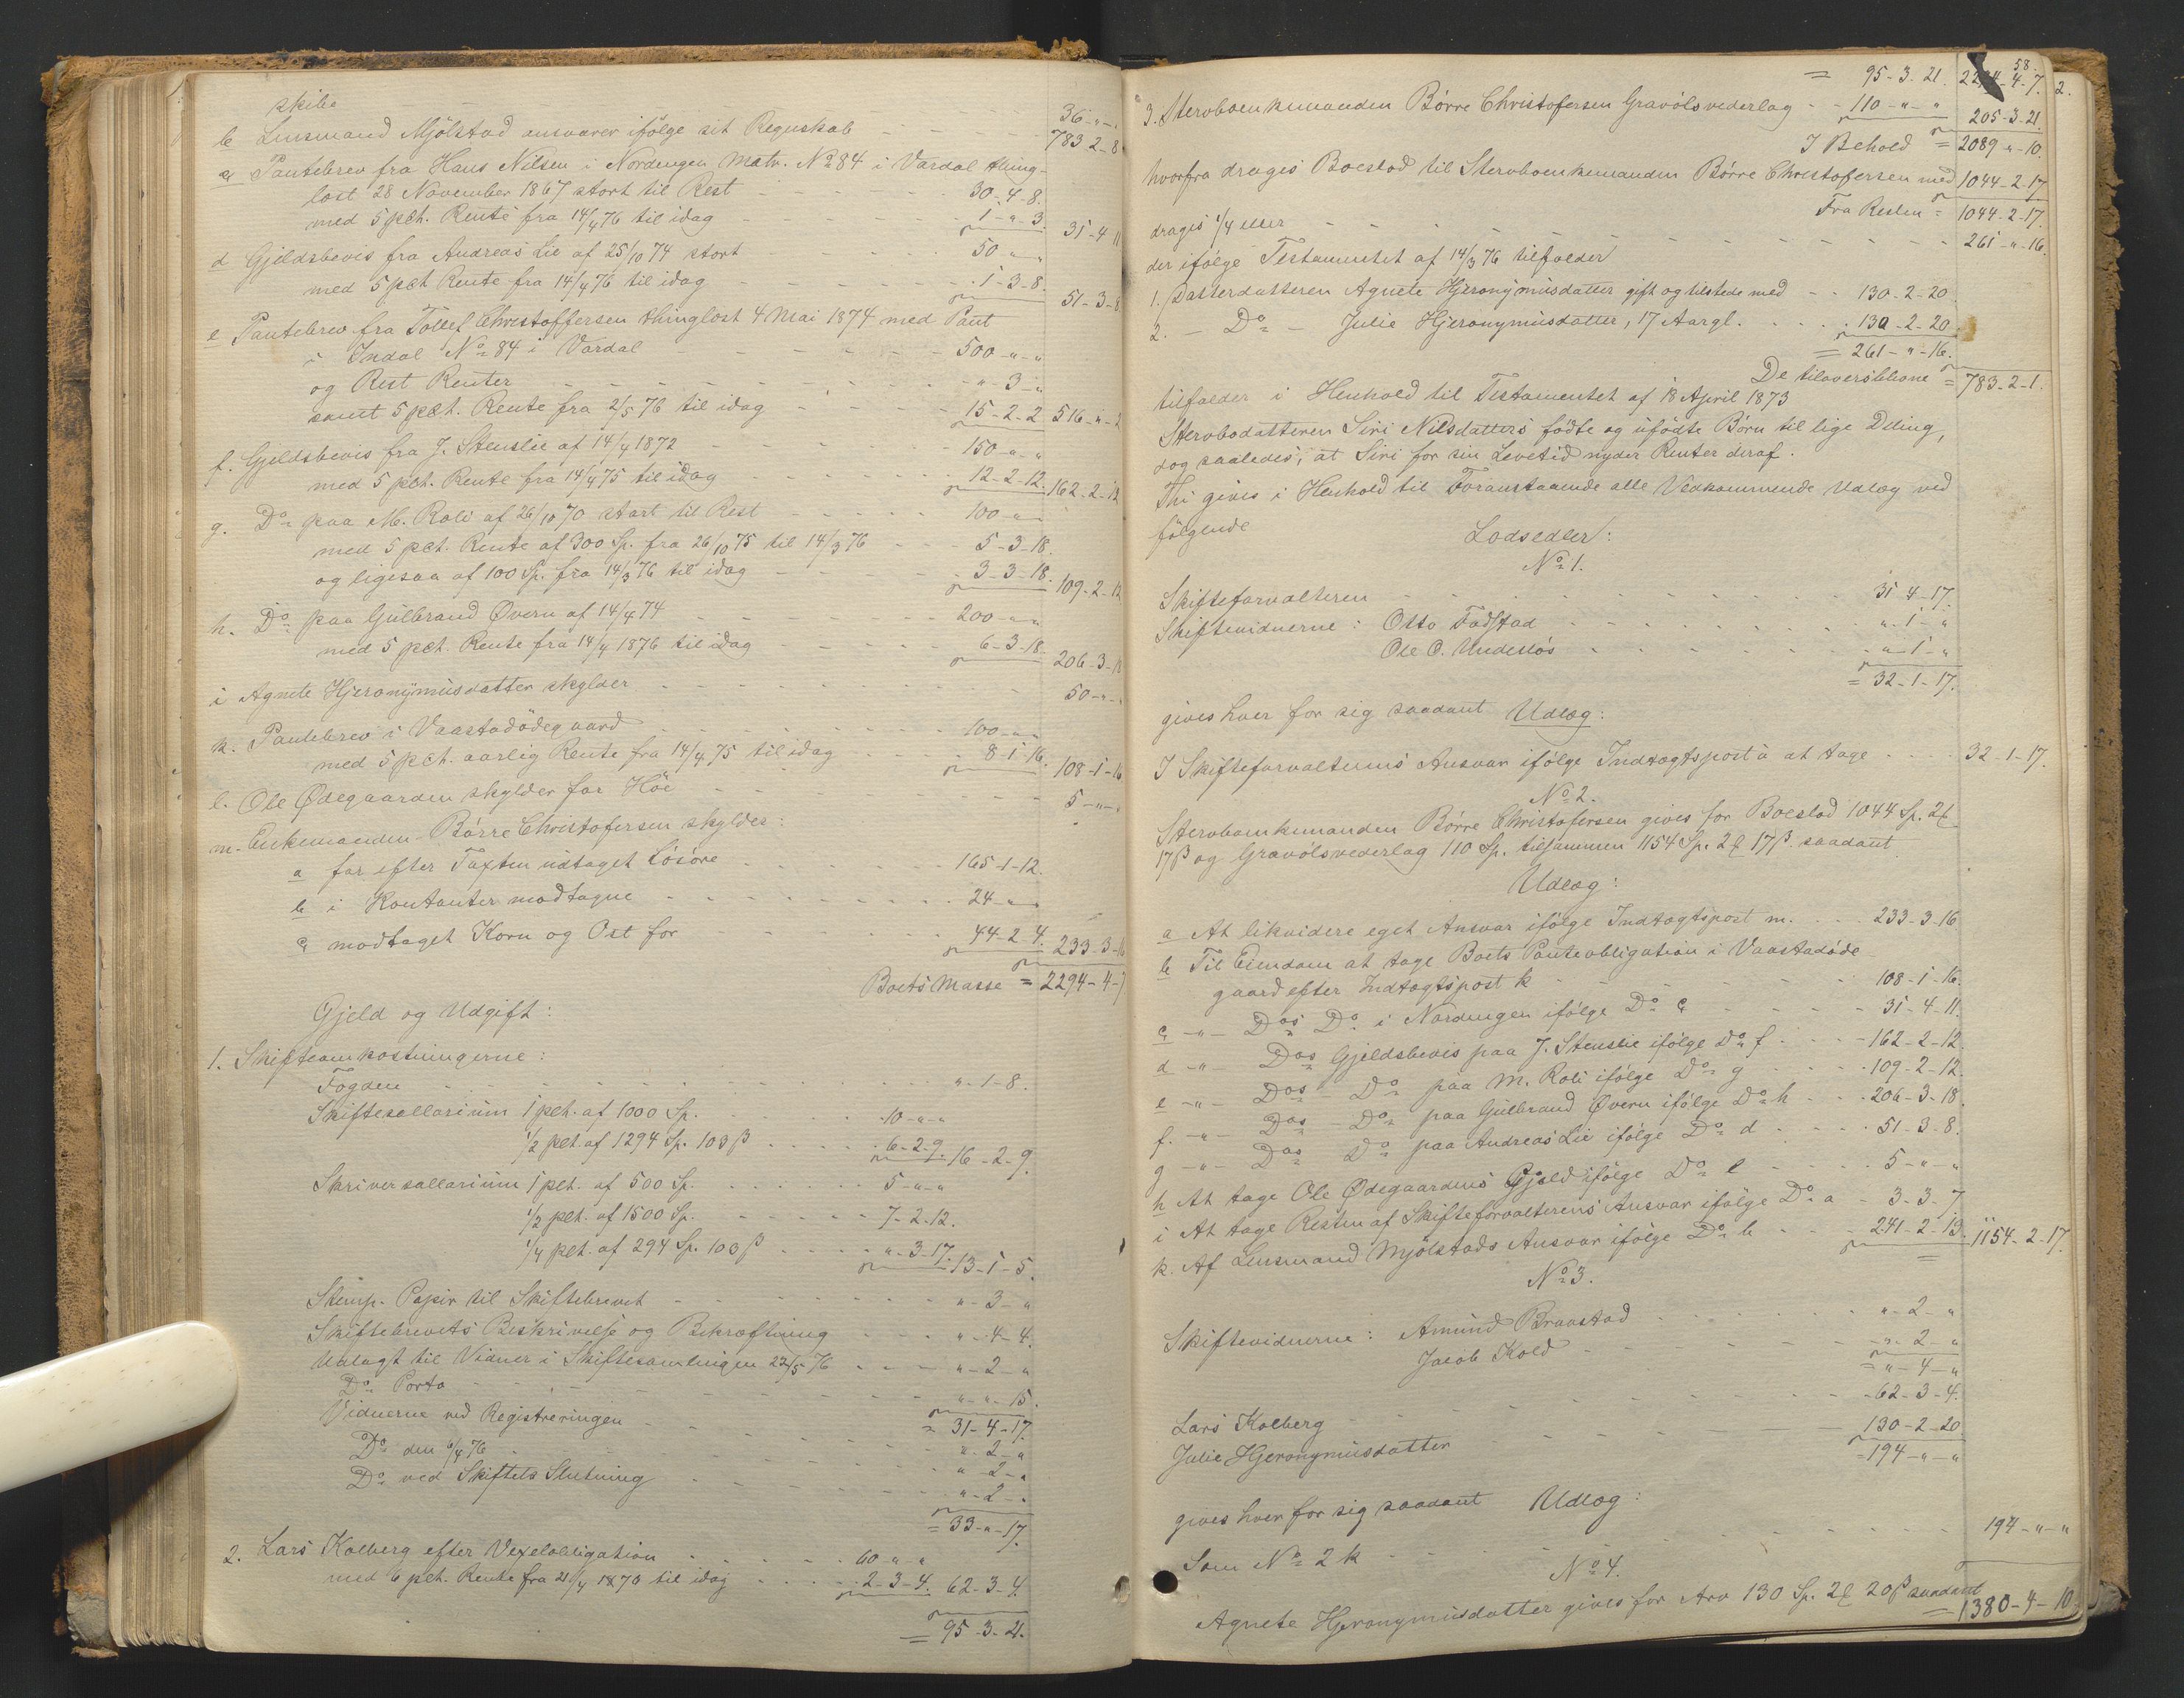 skibe - - - 36-"-"
b Lensmand Mjölstad ansvarer ifölge sit Regnskab - - - 783-2-8
c Pantebrev fra Hans Nilsen i Nordengen Matr. No 84 i Vardal thing-
löst 28 November 1867 stort til Rest - - - 30-4-8.
med 5 pct. Rente fra 14/4 76 til idag - - - 1-"-3. 31-4-11
d Gjeldsbevis fra Andreas Lie af 25/10 74 stort - - - 50-"-"
med 5 pct Rente fra 14/4 76 til idag - - - 1-3-8. 51-3-8
e Pantebrev fra Töllef Christoffersen thinglöst 4 Mai 1874 med Pant
i Indal No 84 i Vardal - - - 500-"-"
og Rest Renter - - - "-3-"
samt 5 pct. Rente fra 2/5 76 til idag - - - 15-2-2 516-"-2
f. Gjeldsbevis fra J. Stenslie af 14/4 1872 - - - 150-"-"
med 5 pct. Rente fra 14/4 75 til idag - - - 12-2-12. 162-2-12
g. Do paa M. Roli af 26/10 70 stort til Rest - - - 100-"-"
med 5 pct. Rente af 300 Sp. fra 26/10 75 til 14/3 76 - - 5-3-18.
og ligesaa af 100 Sp. fra 14/3 76 til idag - - - 3-3-18. 109-2-12
h. Do paa Gulbrand Øvern af 14/4 74 - - - 200-"-"
med 5 pct. Rente fra 14/4 1876 til idag - - - 6-3-18. 206-3-18
i Agnete Hjeronymusdatter skylder - - - 50-"-"
k. Pantebrev i Vaastadödegaard - - - 100-"-"
med 5 pct. aarlig Rente fra 14/4 75 til idag - - - 8-1-16. 108-1-16
l. Ole Ødegaarden skylder for Höe - - - 5-"-"
m. Enkemanden Börre Christofersen skylder:
a for efter Taxten udtaget Lösöre - - - 165-1-12.
b i Kontanter modtagne - - - 24-"-"
c modtaget Korn og Ost for - - - 44-2-4. 233-3-16
Boets Masse = 2294-4-7
Gjeld og Udgift:
1. Skifteomkostningerne:
Fogden - - - "-1-8.
Skiftesallarium 1 pct. af 1000 Sp. - - - 10-"-"
1/2 pct. af 1294 Sp. 103 β - - - 6-2-9. 16-2-9.
Skriversallarium 1 pct. af 500 Sp. - - - 5-"-"
1/2 pct. af 1500 Sp. - - - 7-2-12.
1/4 pct. af 294 Sp. 103 β - - - "-3-17. 13-1-5.
Stemp. Papir til Skiftebrevet - - - "-3-"
Skiftebrevets Beskrivelse og Bekræftning - - - "-4-4.
Udlagt til Vidner i Skiftesamlingen 22/5 76 - - - "-2-"
Do Porto - - - "-"-15.
= 31-4-17.
Vidnerne ved Registreringen - - - "-2-"
Do den 6/4 76 - - - "-2-"
Do ved Skiftets Slutning - - - "-2-"
= 33-"-17.
2. Lars Kolberg efter Vexelobligation - - - 60-"-"
med 6 pct. Rente fra 21/4 1876 til idag - - - 2-3-4. 62-3-4.
= 95-3-21.
58.
= 95-3-21. 2294-4-7. 2.
3. Stervboenkemanden Börre Christofersen Gravölsvederlag - - 110-"-" 205-3-21.
I Behold = 2089-"-10.
hvorfra drages Boeslod til Stervboenkemanden Börre Christofersen med 1044-2-17
Fra Resten = 1044-2-17.
drages 1/4 eller - - - 261-"-16.
der ifölge Testamentet af 14/3 76 tilfalder
1. Datterdatteren Agnete Hjeronymusdatter gift og tilstede med - - 130-2-20
2. - Do - Julie Hjeronymusdatter, 17 Aar gl. - - - 130-2-20.
= 261-"-16.
De tiloversblevne = 783-2-1.
tilfalder i Henhold til Testamentet af 18 April 1873
Stervbodatteren Siri Nilsdatters födte og ufödte Börn til lige Deling,
dog saaledes, at Siri for sin Levetid nyder Renter deraf.
Thi gives i Henhold til Foranstaaende alle Vedkommende Udlæg ved
fölgende Lodsedler:
No 1.
Skifteforvalteren - - - 31-4-17.
Skiftevidnerne: Otto Fodstad - - - "-1-"
Ole O. Undeslös - - - "-1-"
= 32-1-17.
gives hver for sig saadant Udlæg:
I Skifteforvalterens Ansvar ifölge Indtægtspost a at tage - - - 32-1-17.
No 2.
Stervboenkemanden Börre Christofersen gives for Boeslod 1044 Sp. 2 ℔
17 β og Gravölsvederlag 110 Sp. tilsammen 1154 Sp. 2 ℔ 17 β saadant
Udlæg:
a At likvidere eget Ansvar ifölge Indtægtspost m. - - - 233-3-16
b Til Eiendom at tage Boets Panteobligation i Vaastadöde
gaard efter Indtægtspost k - - - 108-1-16.
c -"- Dos Do i Nordengen ifölge Do c - - - 31-4-11.
d -"- Dos Gjeldsbevis paa J. Stenslie ifölge Do f - - - 162-2-12.
e -"- Dos - Do paa M. Roli ifölge Do g - - - 109-2-12.
f. -"- Dos - Do paa Gulbrand Øvern ifölge Do h - - - 206-3-18.
g -"- Dos Do paa Andreas Lie ifölge Do d - - - 51-3-8.
h At tage Ole Ødegaardens Gjeld ifölge Do l - - - 5-"-"
i At tage Resten af Skifteforvalterens Ansvar ifölge Do a - 3-3-7
k. Af Lensmand Mjölstads Ansvar ifölge Do b - - - 241-2-13. 1154-2-17.
No 3.
Skiftevidnerne: Amund Braastad - - - "-2-"
Jacob Kold - - - "-2-"
= "-4-"
Lars Kolberg - - - 62-3-4.
Julie Hjeronymusdatter - - - 130-2-20
= 194-"-"
gives hver for sig saadant Udlæg:
Som No 2 k - - - 194-"-"
No 4.
Agnete Hjeronymusdatter gives for Arv 130 Sp. 2 ℔ 20 β saadant
= 1380-4-10.